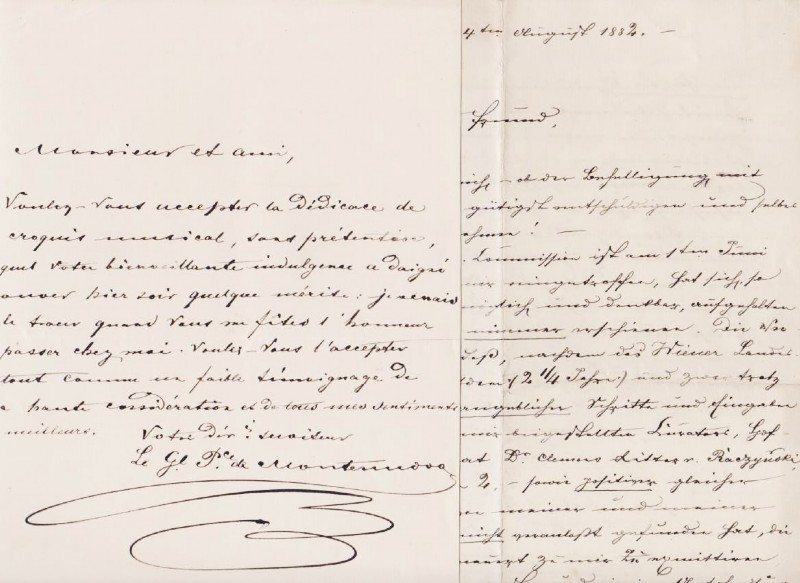 Monsieur et ami,
Voulez-vous accepter la dédicace de
croquis musical, sans prétention,
quel votre bienveillante indulgence a daigné
ouver hier soir quelque mérite: je venais
le tracer quand vous me fîtes l'honneur
passer chez moi. Voulez-vous l'accepter
tout comme un faible témoignage de
a haute considération et de tous mes sentiments
meilleurs.
Votre dév. serviteur
Le Gl. Pce de Montenuovo
4ten August 1882. –
Freund,
mich, – ob der Behelligung, mit
gütigst entschuldigen und selbe
ehmen! –
Kommission ist am 1ten Juni
eingetroffen, hat sich, so
möglich und denkbar, aufgehalten
nimmer erschienen. Die
daß, nachdem das Wiener Landes-
(2 1/4 Jahre!) und zwar trotz
angeblicher Schritte und Eingaben
mir beigestellten Curators, Hof-
at Dr Clemens Ritter v. Raczyński,
2. – sowie positiver gleicher
meiner und meiner
nicht veranlaßt gefunden hat, die
zu mir zu